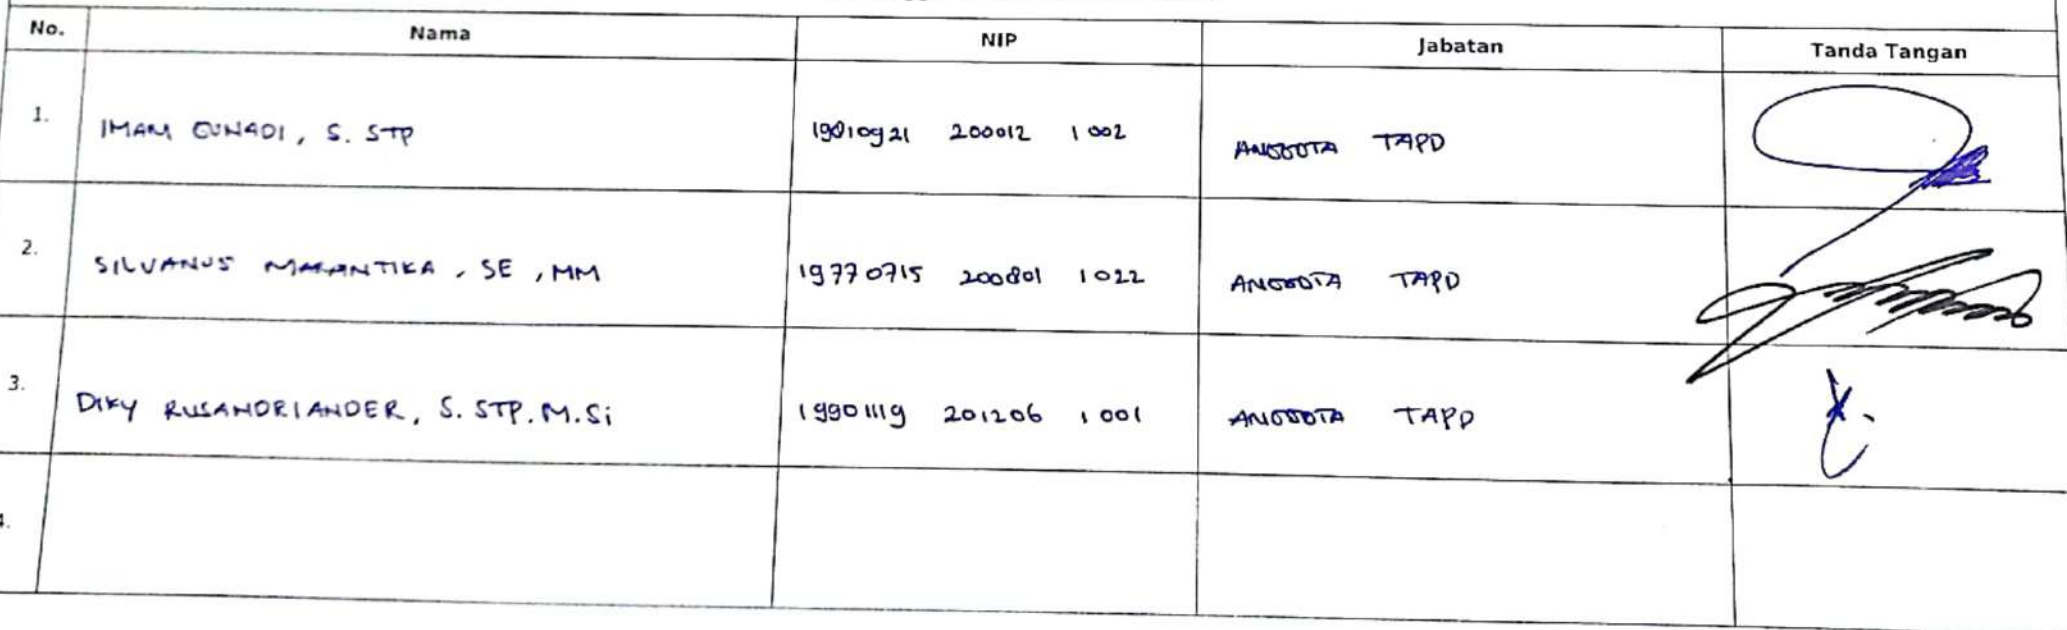 No. Nama NIP Jabatan Tanda Tangan
1. IMAM GUNADI, S. STP 19810921 200012 1 002 ANGGOTA TAPD
2. SILVANUS MARANTIKA, SE, MM 19770715 200801 1 022 ANGGOTA TAPD
3. DIKY RUSANDRIANDER, S. STP. M.Si 19901119 201206 1 001 ANGGOTA TAPD
4.